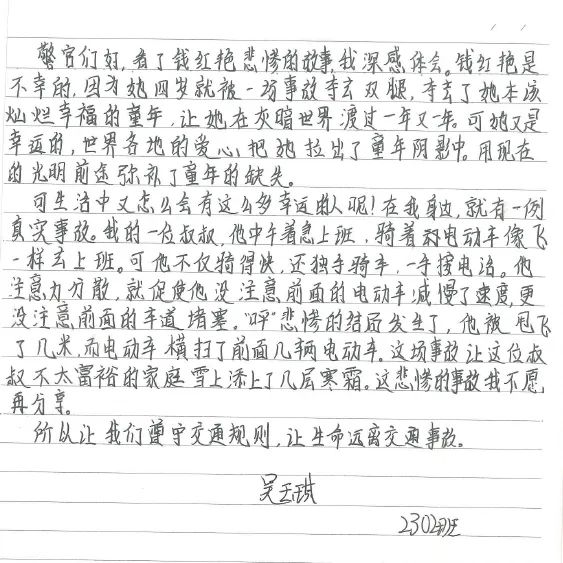 警官们好，看了钱红艳悲惨的故事，我深感体会。钱红艳是
不幸的，因为她四岁就被一场事故夺去双腿，夺去了她本该
灿烂幸福的童年，让她在灰暗世界渡过一年又一年。可她又是
幸运的，世界各地的爱心，把她拉出了童年阴影中。用现在
的光明前途弥补了童年的缺失。
可生活中又怎么会有这么多幸运的人呢！在我身边，就有一例
真实事故。我的一位叔叔，他中午着急上班，骑着电动车像飞
一样去上班。可他不仅骑得快，还独手骑车，一手接电话。他
注意力分散，就促使他没注意前面的电动车减慢了速度，更
没注意前面的车道堵塞。“呯”悲惨的结局发生了，他被甩飞
了几米，而电动车横扫了前面几辆电动车。这场事故让这位叔
叔不太富裕的家庭雪上添上了几层寒霜。这悲惨的事故我不愿
再分享。
所以让我们遵守交通规则，让生命远离交通事故。
吴玉琪
2302班